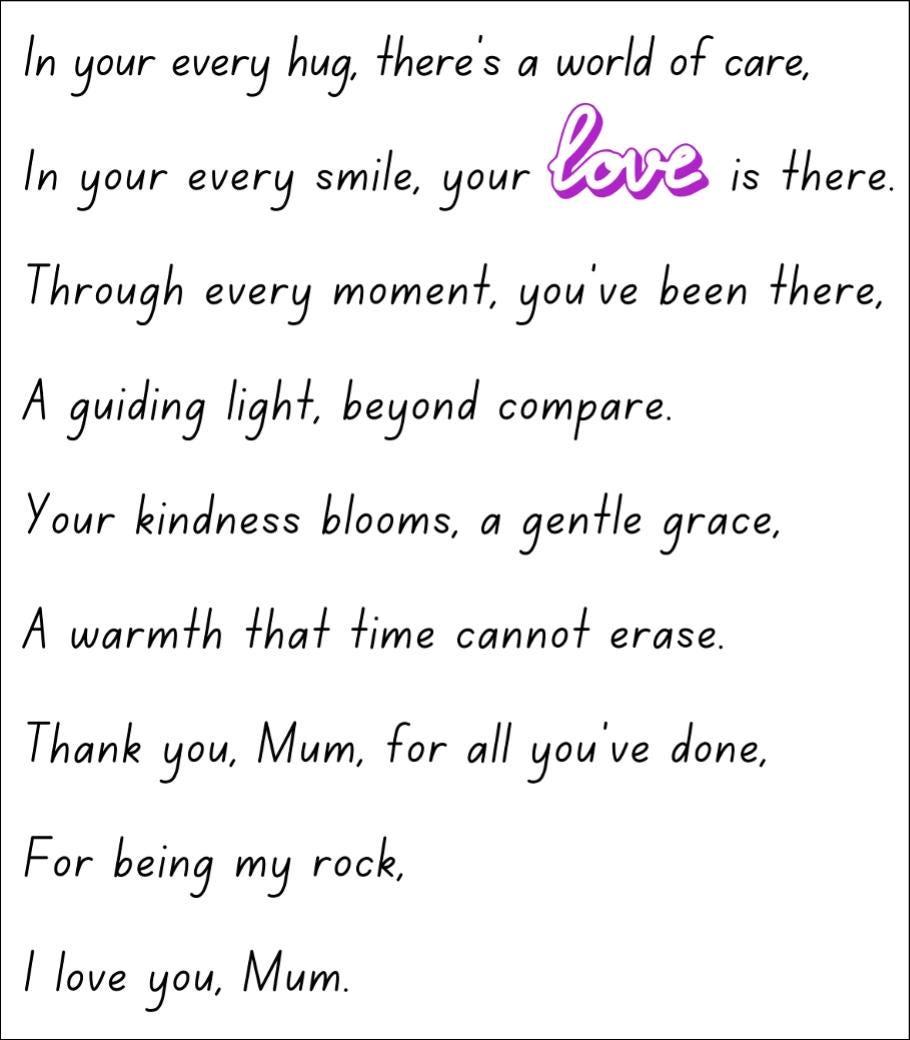 In your every hug, there's a world of care,
In your every smile, your love is there.
Through every moment, you've been there,
A guiding light, beyond compare.
Your kindness blooms, a gentle grace,
A warmth that time cannot erase.
Thank you, Mum, for all you've done,
For being my rock,
I love you, Mum.